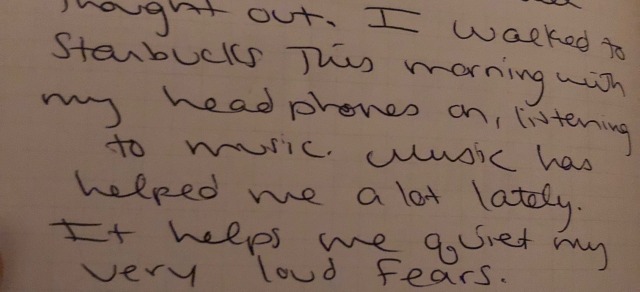 thought out. I walked to
Starbucks This morning with
my head phones on, listening
to music. Music has
helped me a lot lately.
It helps me quiet my
very loud fears.